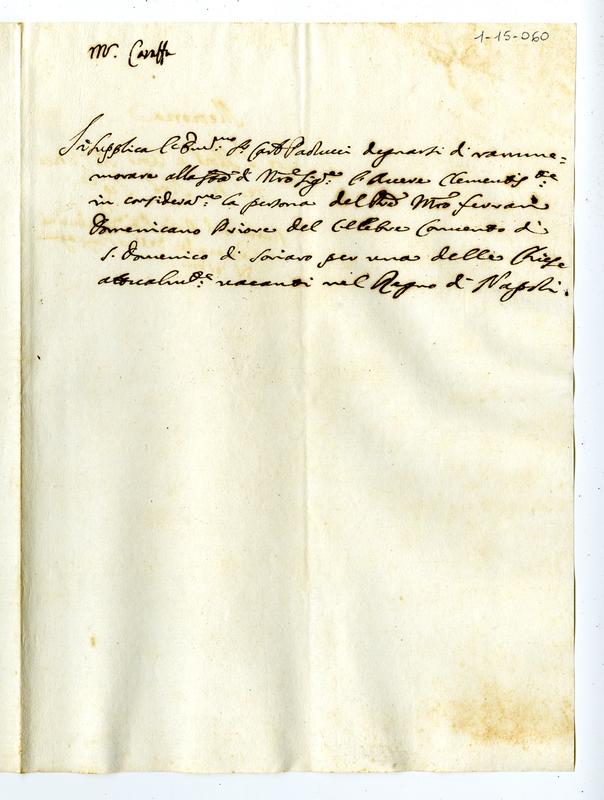 1-15-060
Mr. Caraffa
Si supplica l'Emin.mo Sr. Card. Paolucci degnarsi di ramme=
morare alla Stà di Nro Sig.re l'avere Clementis.te
in considera.ne la persona del Pre Mro Ferrari
Domenicano Priore del Celebre Convento di
S. Domenico di Soriano per una delle Chiese
attualm.te vacanti nel Regno di Napoli.